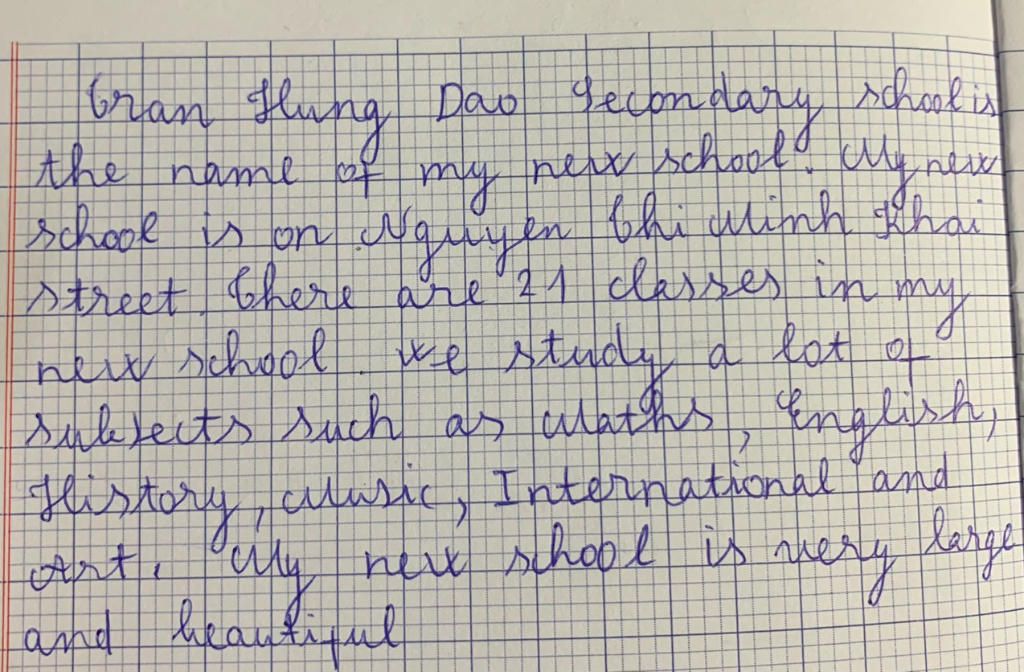 Tran Hung Dao Secondary school is
the name of my new school. My new
school is on Nguyen Thi Minh Khai
street. There are 21 classes in my
new school. we study a lot of
subjects such as Maths, English,
History, Music, International and
Art. My new school is very large
and beautiful